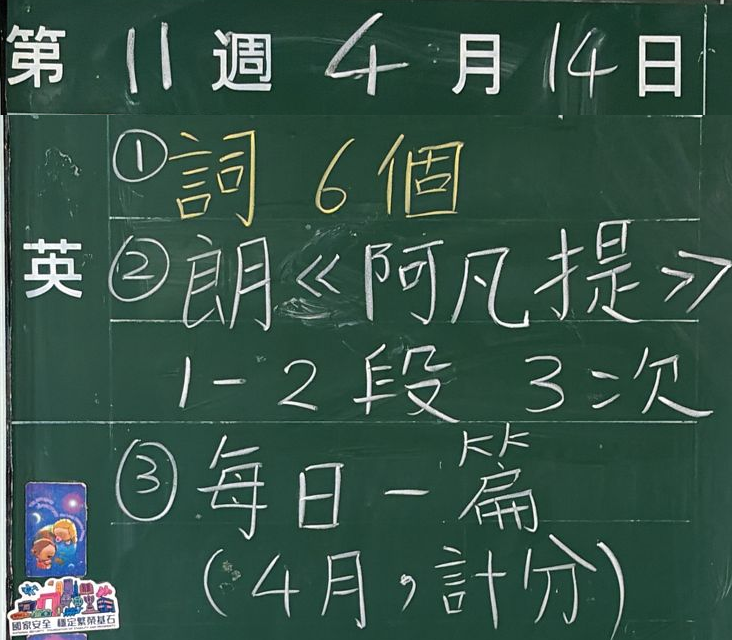 第 11 週 4 月 14 日
英
① 詞 6 個
② 朗《阿凡提》
1-2 段 3 次
③ 每日一篇
(4月,計分)
國家安全 穩定繁榮基石